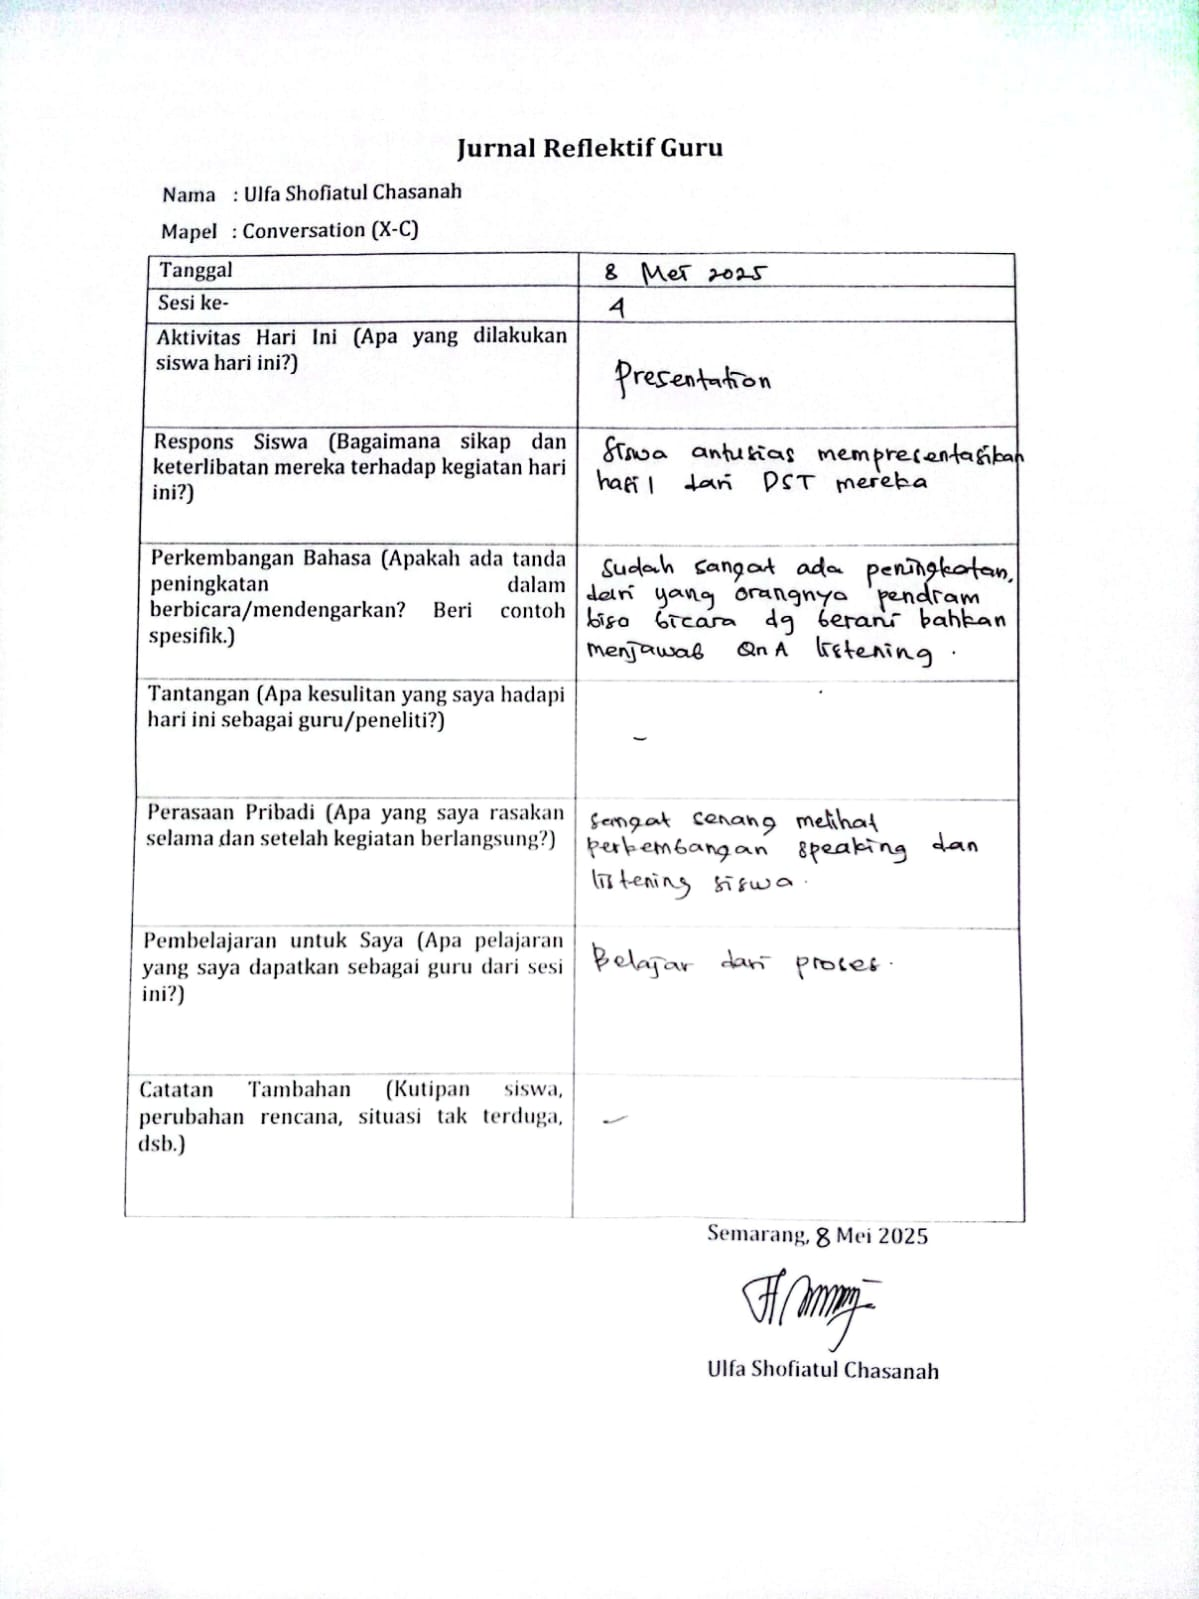 Jurnal Reflektif Guru
Nama : Ulfa Shofiatul Chasanah
Mapel : Conversation (X-C)
Tanggal
8 Mei 2025
Sesi ke-
4
Aktivitas Hari Ini (Apa yang dilakukan
siswa hari ini?)
Presentation
Respons Siswa (Bagaimana sikap dan
keterlibatan mereka terhadap kegiatan hari
ini?)
Siswa antusias mempresentasikan
hasil dari DST mereka
Perkembangan Bahasa (Apakah ada tanda
peningkatan dalam
berbicara/mendengarkan? Beri contoh
spesifik.)
Sudah sangat ada peningkatan,
dari yang orangnya pendiam
bisa bicara dg berani bahkan
menjawab QnA listening.
Tantangan (Apa kesulitan yang saya hadapi
hari ini sebagai guru/peneliti?)
-
Perasaan Pribadi (Apa yang saya rasakan
selama dan setelah kegiatan berlangsung?)
Sangat senang melihat
perkembangan speaking dan
listening siswa.
Pembelajaran untuk Saya (Apa pelajaran
yang saya dapatkan sebagai guru dari sesi
ini?)
Belajar dari proses.
Catatan Tambahan (Kutipan siswa,
perubahan rencana, situasi tak terduga,
dsb.)
-
Semarang, 8 Mei 2025
Ulfa Shofiatul Chasanah